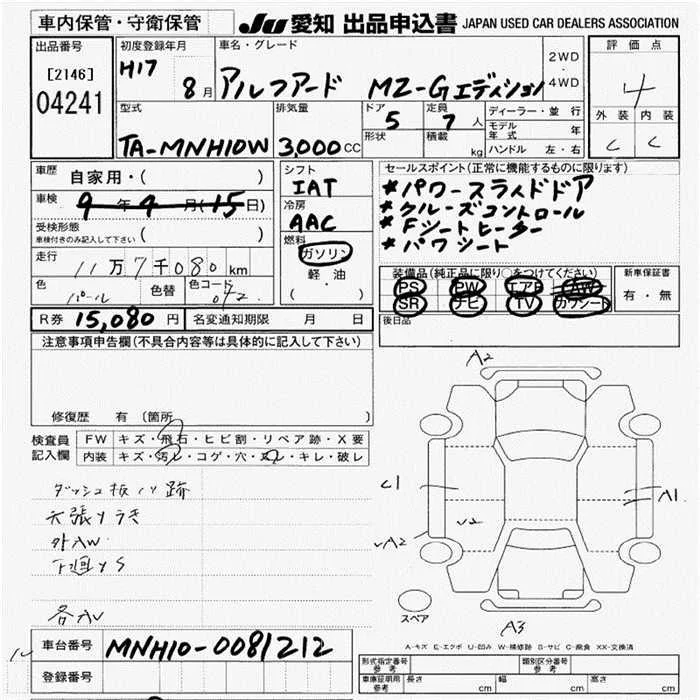 車内保管・守衛保管
JU 愛知 出品申込書 JAPAN USED CAR DEALERS ASSOCIATION
出品番号 初度登録年月 車名・グレード 評価点
[2146] H17 8月 アルファード MZ-Gエディション 2WD・4WD 4
04241
型式 排気量 ドア 定員 ディーラー・並行 外装 内装
TA-MNH10W 3,000CC 5 7人 モデル年式 年 C C
形状 積載 kg ハンドル 左・右
車歴 自家用・( )
車検 9年9月(15日)
受検形態 車検付きのみ記入して下さい ( )
走行 11万7千080km
色 パール 色替 色コード 042
シフト
IAT
冷房
AAC
燃料
ガソリン
軽・油
( )
セールスポイント(正常に機能するものに限ります)
*パワースライドドア
*クルーズコントロール
*Fシートヒーター
*パワシート
装備品(純正品に限り○をつけてください) 新車保証書
PS PW エアB AW 有・無
SR ナビ TV カワシート
R券 15,080円 名変通知期限 月 日
後日品
注意事項申告欄(不具合内容等は具体的に記入して下さい)
修復歴 有 〔箇所
検査員 FW キズ・飛石・ヒビ割・リペア跡・X要
記入欄 内装 キズ・汚レ・コゲ・穴・スレ・キレ・破レ
ダッシュ板ハリ跡
天張りうき
外AW
下廻りS
各AU
A2
C1
A1
A2
A3
スペア
A-キズ E-エクボ U-凹み W-補修跡 S-サビ C-腐食 XX-交換済
車台番号 MNH10-0081212
登録番号
形式指定番号 参考 類別区分番号 参考
車庫証明用 参考 長さ cm 幅 cm 高さ cm